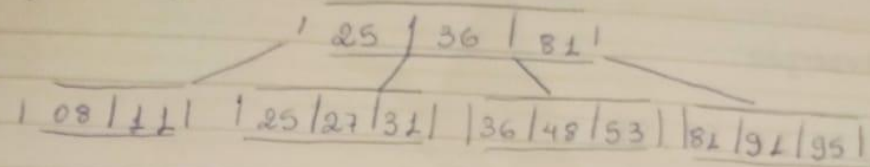 | 25 | 36 | 81 |
| 08 | 11 | | 25 | 27 | 31 | | 36 | 48 | 53 | | 81 | 91 | 95 |